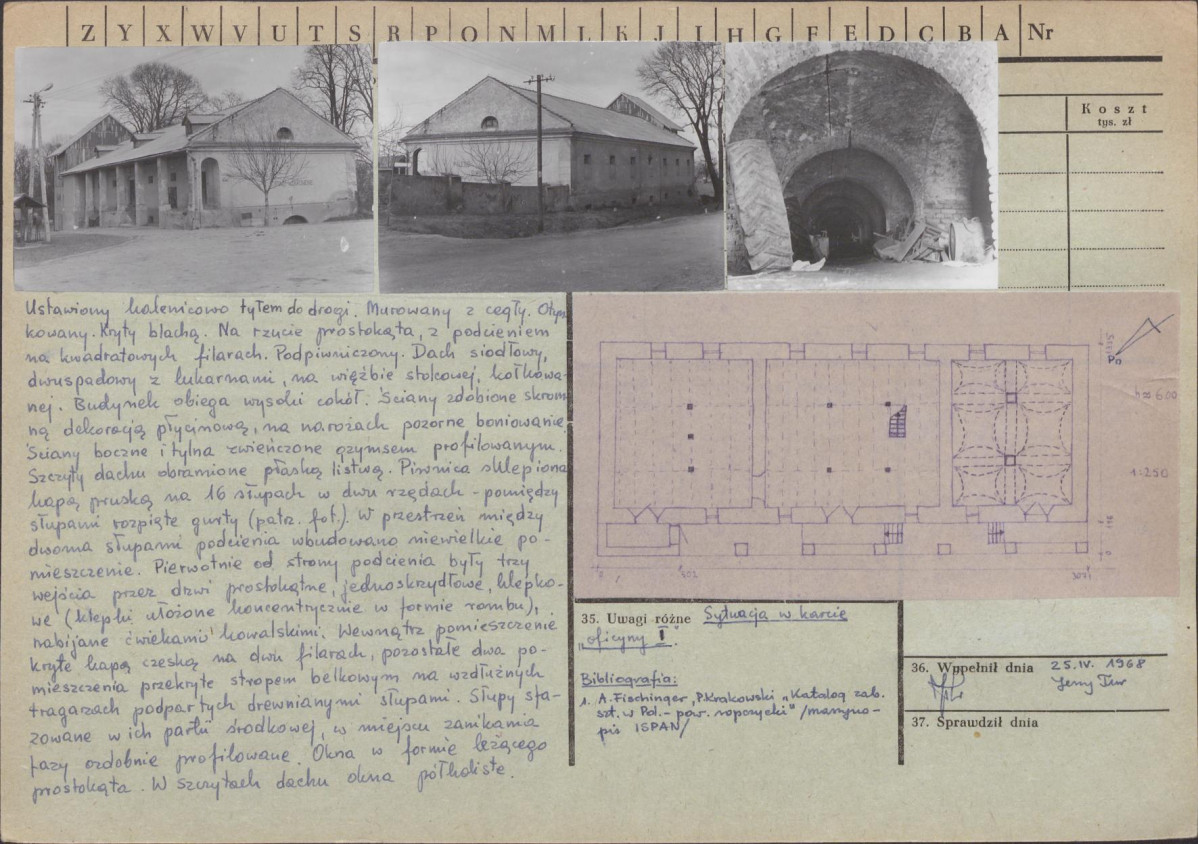 Z Y X W V U T S R P O N M L K J I H G F E D C B A Nr
Koszt
tys. zł
Ustawiony kalenicowo tyłem do drogi. Murowany z cegły. Otyn
kowany. Kryty blachą. Na rzucie prostokąta, z podcieniem
na kwadratowych filarach. Podpiwniczony. Dach siodłowy,
dwuspadowy z lukarnami, na więźbie stolcowej, kołkowa-
nej. Budynek obiega wysoki cokół. Ściany zdobione skrom
ną dekoracją płycinową, na narożach pozorne boniowanie.
Ściany boczne i tylna zwieńczone gzymsem profilowanym.
Szczyty dachu obramione płaską listwą. Piwnica sklepiona
kapą pruską na 16 słupach w dwu rzędach - pomiędzy
słupami rozpięte gurty (patrz. fot.). W przestrzeń między
dwoma słupami podcienia wbudowano niewielkie po-
mieszczenie. Pierwotnie od strony podcienia były trzy
wejścia przez drzwi prostokątne, jednoskrzydłowe, klepko-
we (klepki ułożone koncentrycznie w formie rombu),
nabijane ćwiekami kowalskimi. Wewnątrz pomieszczenie
kryte kapą czeską na dwu filarach, pozostałe dwa po-
mieszczenia przekryte stropem belkowym na wzdłużnych
tragarzach podpartych drewnianymi słupami. Słupy sfa-
zowane w ich partii środkowej, w miejscu zanikania
fazy ozdobnie profilowane. Okna w formie leżącego
prostokąta. W szczytach dachu okna półkoliste.
Pn
h≈600
1:250
0
502
3021
35. Uwagi różne Sytuacja w karcie
"oficyny I".
Bibliografia:
1. A. Fischinger, P. Krakowski "Katalog zab.
szt. w Pol. - pow. ropczycki" /maszyno-
pis ISPAN/
36. Wypełnił dnia 25.IV. 1968
Jerzy Tur
37. Sprawdził dnia